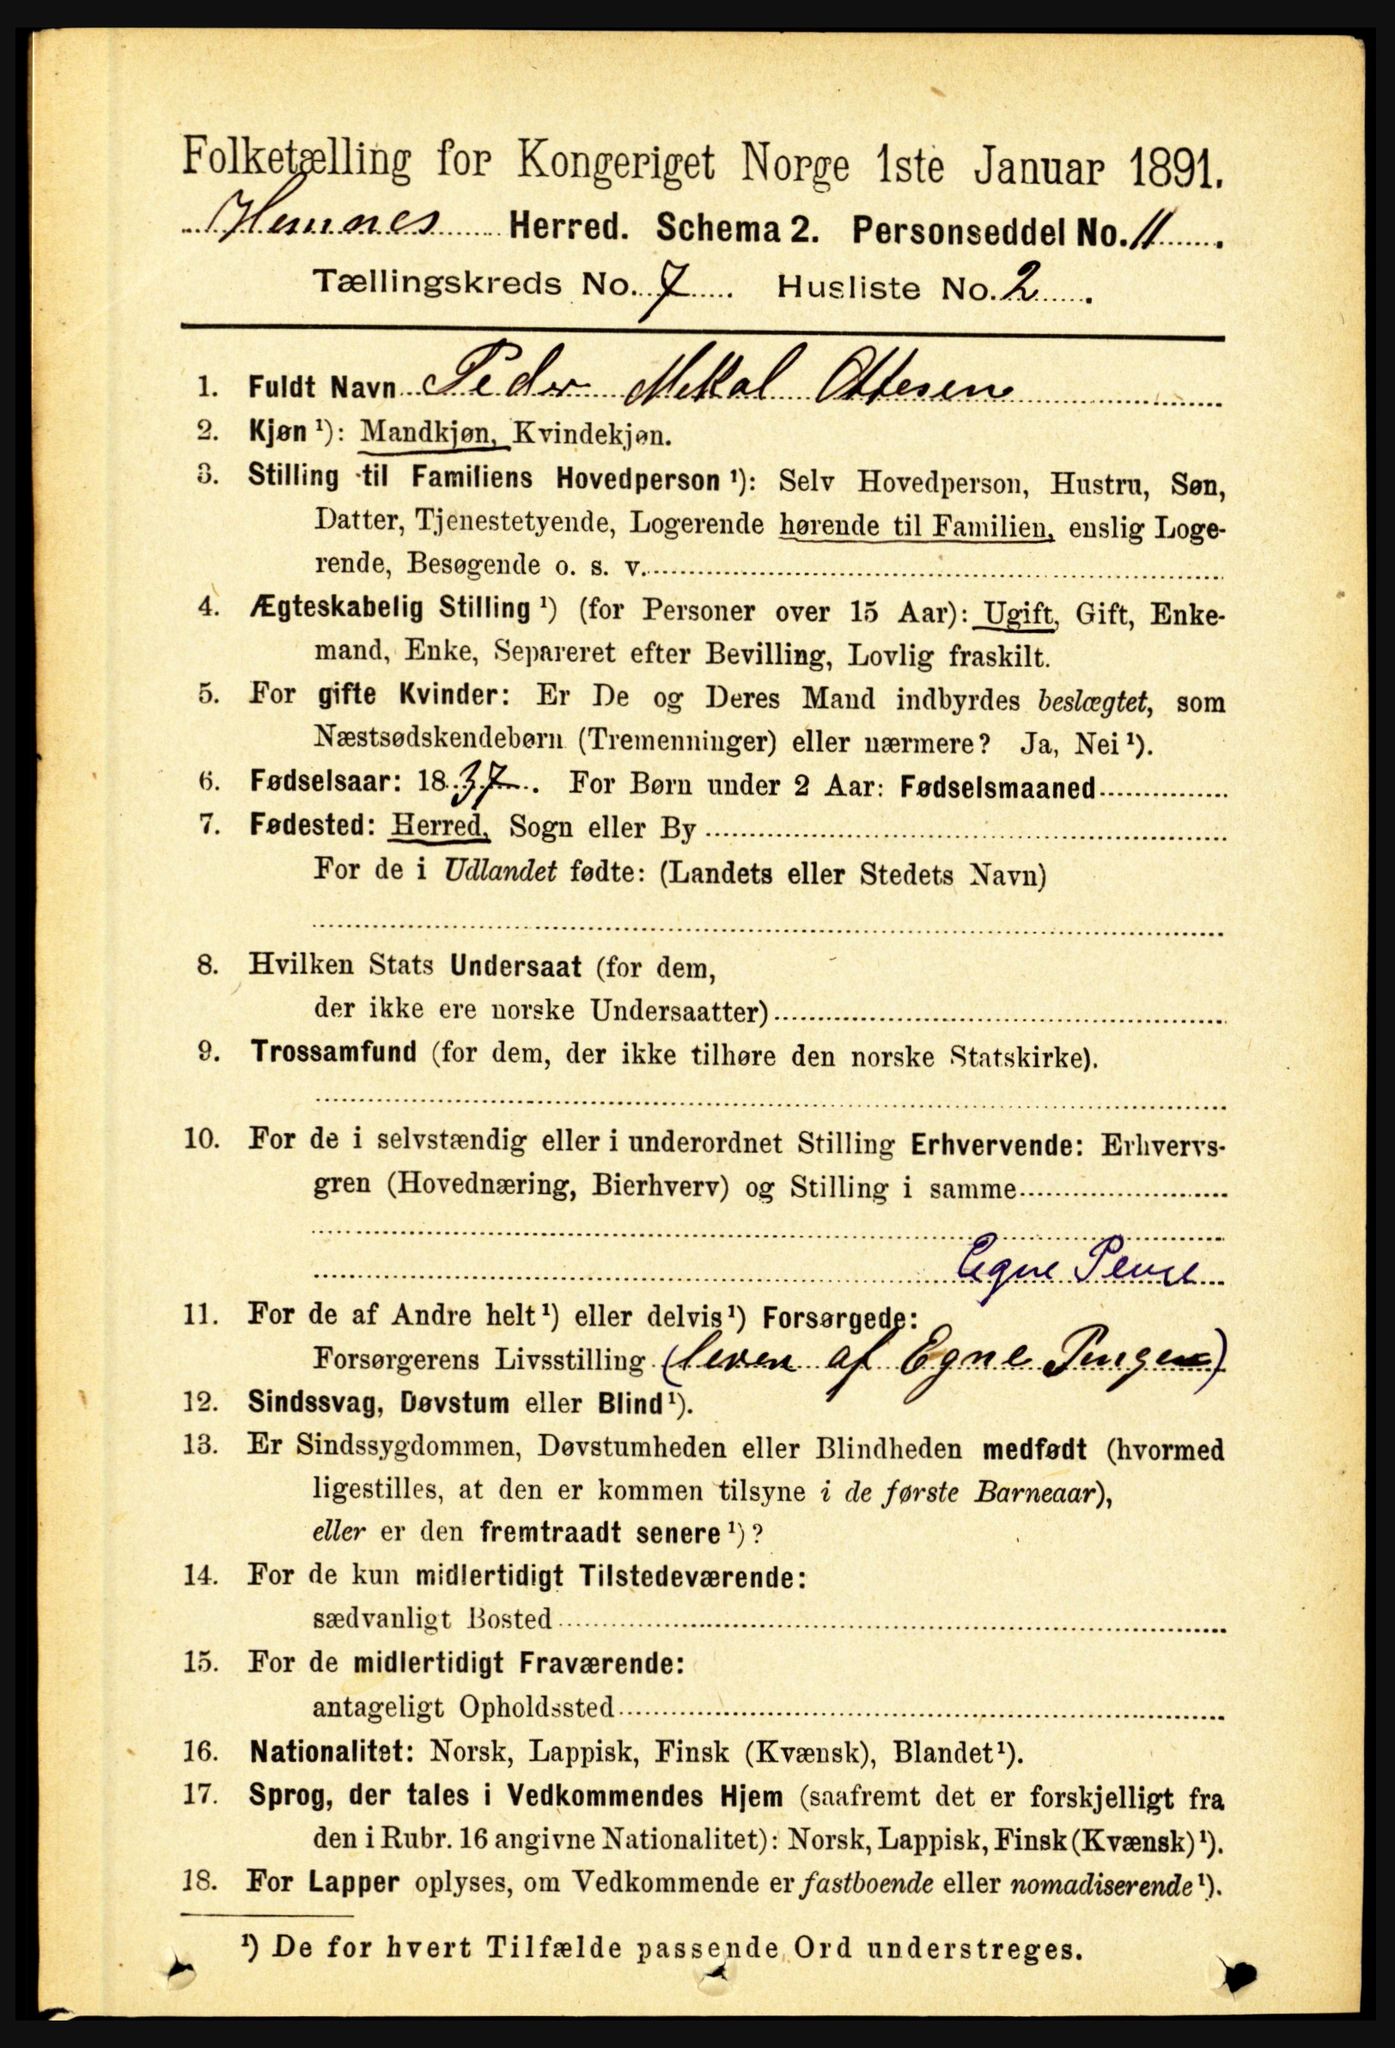 Folketælling for Kongeriget Norge 1ste Januar 1891.
Hemnes Herred. Schema 2. Personseddel No. 11.
Tællingskreds No. 7. Husliste No. 2.
1. Fuldt Navn Peder Mekal Ottesen
2. Kjøn ¹): Mandkjøn, Kvindekjøn.
3. Stilling til Familiens Hovedperson ¹): Selv Hovedperson, Hustru, Søn,
Datter, Tjenestetyende, Logerende hørende til Familien, enslig Loge-
rende, Besøgende o. s. v.
4. Ægteskabelig Stilling ¹) (for Personer over 15 Aar): Ugift, Gift, Enke-
mand, Enke, Separeret efter Bevilling, Lovlig fraskilt.
5. For gifte Kvinder: Er De og Deres Mand indbyrdes beslægtet, som
Næstsødskendebørn (Tremenninger) eller nærmere? Ja, Nei ¹).
6. Fødselsaar: 1837. For Børn under 2 Aar: Fødselsmaaned
7. Fødested: Herred, Sogn eller By
For de i Udlandet fødte: (Landets eller Stedets Navn)
8. Hvilken Stats Undersaat (for dem,
der ikke ere norske Undersaatter)
9. Trossamfund (for dem, der ikke tilhøre den norske Statskirke).
10. For de i selvstændig eller i underordnet Stilling Erhvervende: Erhvervs-
gren (Hovednæring, Bierhverv) og Stilling i samme
Egne Penge
11. For de af Andre helt ¹) eller delvis ¹) Forsørgede:
Forsørgerens Livsstilling (lever af Egne Penger)
12. Sindssvag, Døvstum eller Blind ¹).
13. Er Sindssygdommen, Døvstumheden eller Blindheden medfødt (hvormed
ligestilles, at den er kommen tilsyne i de første Barneaar),
eller er den fremtraadt senere ¹)?
14. For de kun midlertidigt Tilstedeværende:
sædvanligt Bosted
15. For de midlertidigt Fraværende:
antageligt Opholdssted
16. Nationalitet: Norsk, Lappisk, Finsk (Kvænsk), Blandet ¹).
17. Sprog, der tales i Vedkommendes Hjem (saafremt det er forskjelligt fra
den i Rubr. 16 angivne Nationalitet): Norsk, Lappisk, Finsk (Kvænsk) ¹).
18. For Lapper oplyses, om Vedkommende er fastboende eller nomadiserende ¹).
¹) De for hvert Tilfælde passende Ord understreges.